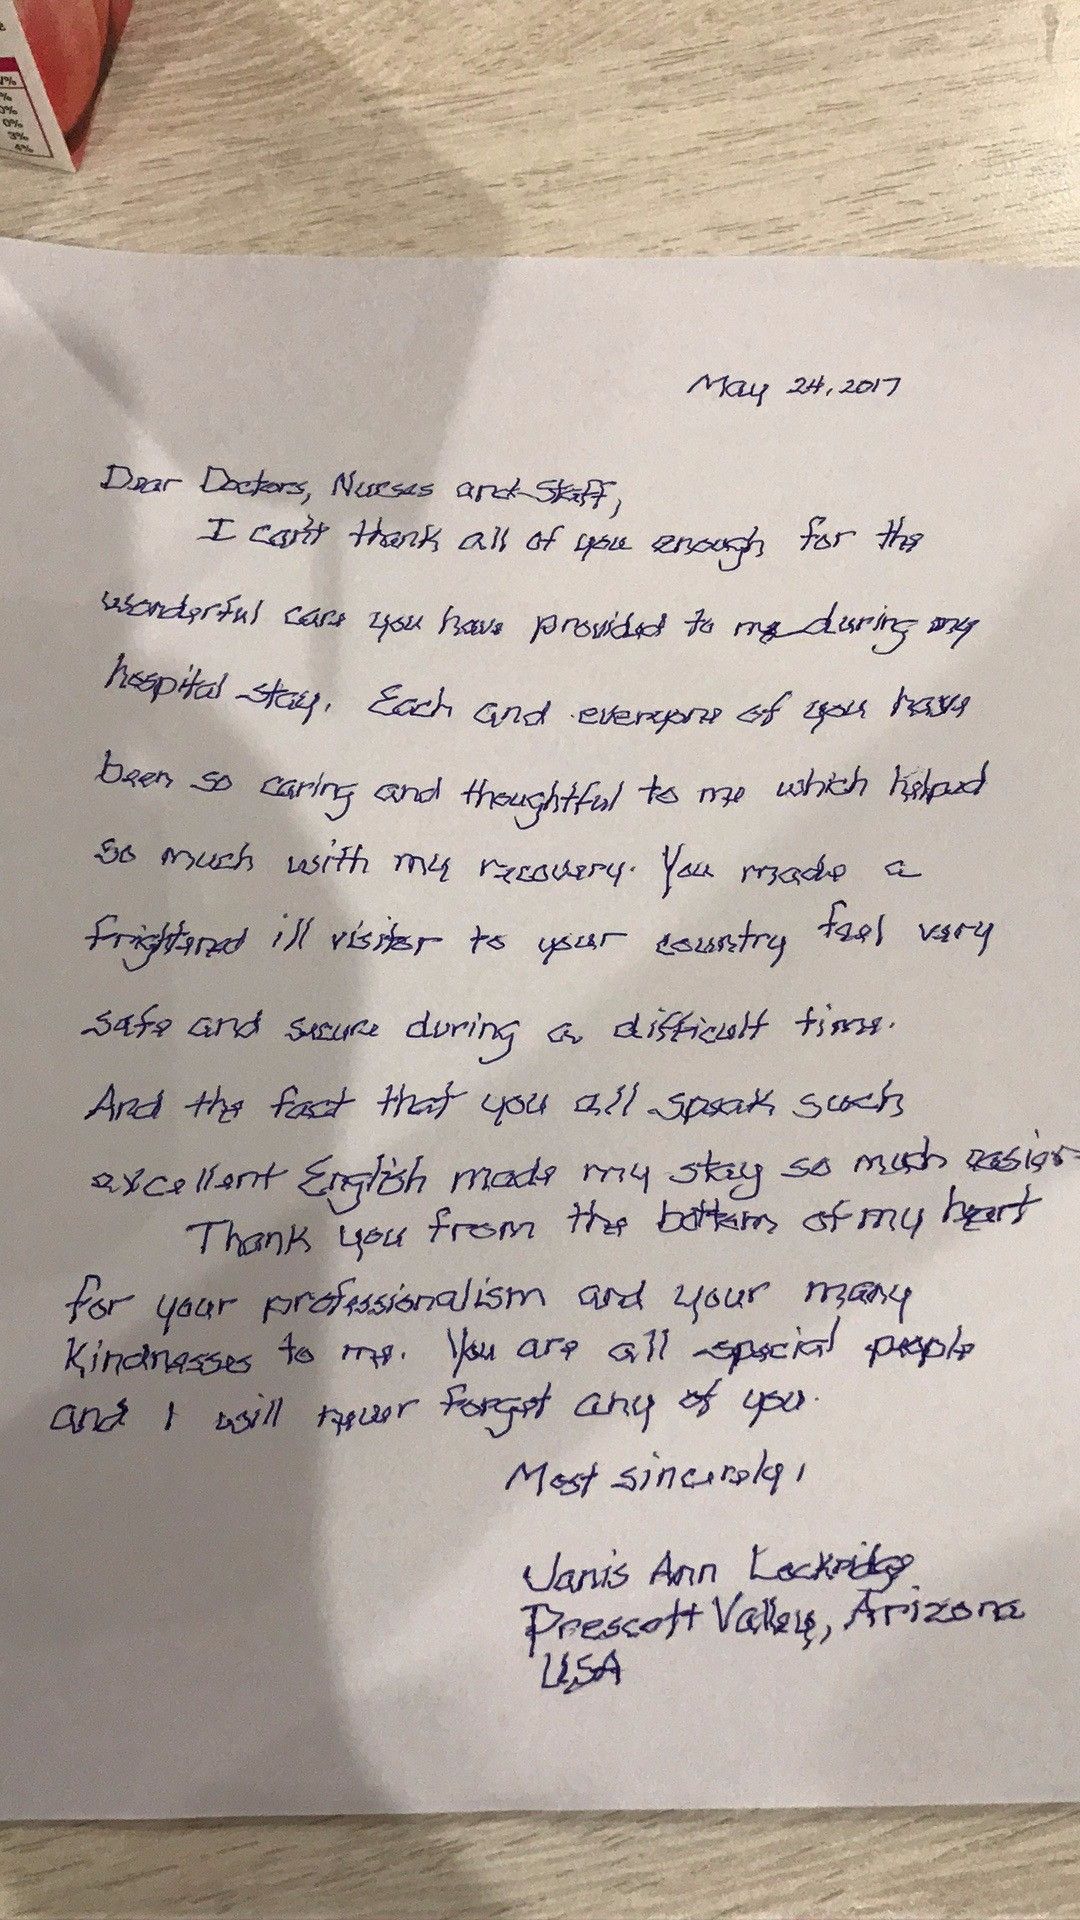 V%
%
0%
0%
3%
4%
May 24, 2017
Dear Doctors, Nurses and Staff,
I can't thank all of you enough for the
wonderful care you have provided to me during my
hospital stay. Each and everyone of you have
been so caring and thoughtful to me which helped
so much with my recovery. You made a
frightened ill visitor to your country feel very
safe and secure during a difficult time.
And the fact that you all speak such
excellent English made my stay so much easier
Thank you from the bottom of my heart
for your professionalism and your many
kindnesses to me. You are all special people
and I will never forget any of you.
Most sincerely,
Janis Ann Lockridge
Prescott Valley, Arizona
USA